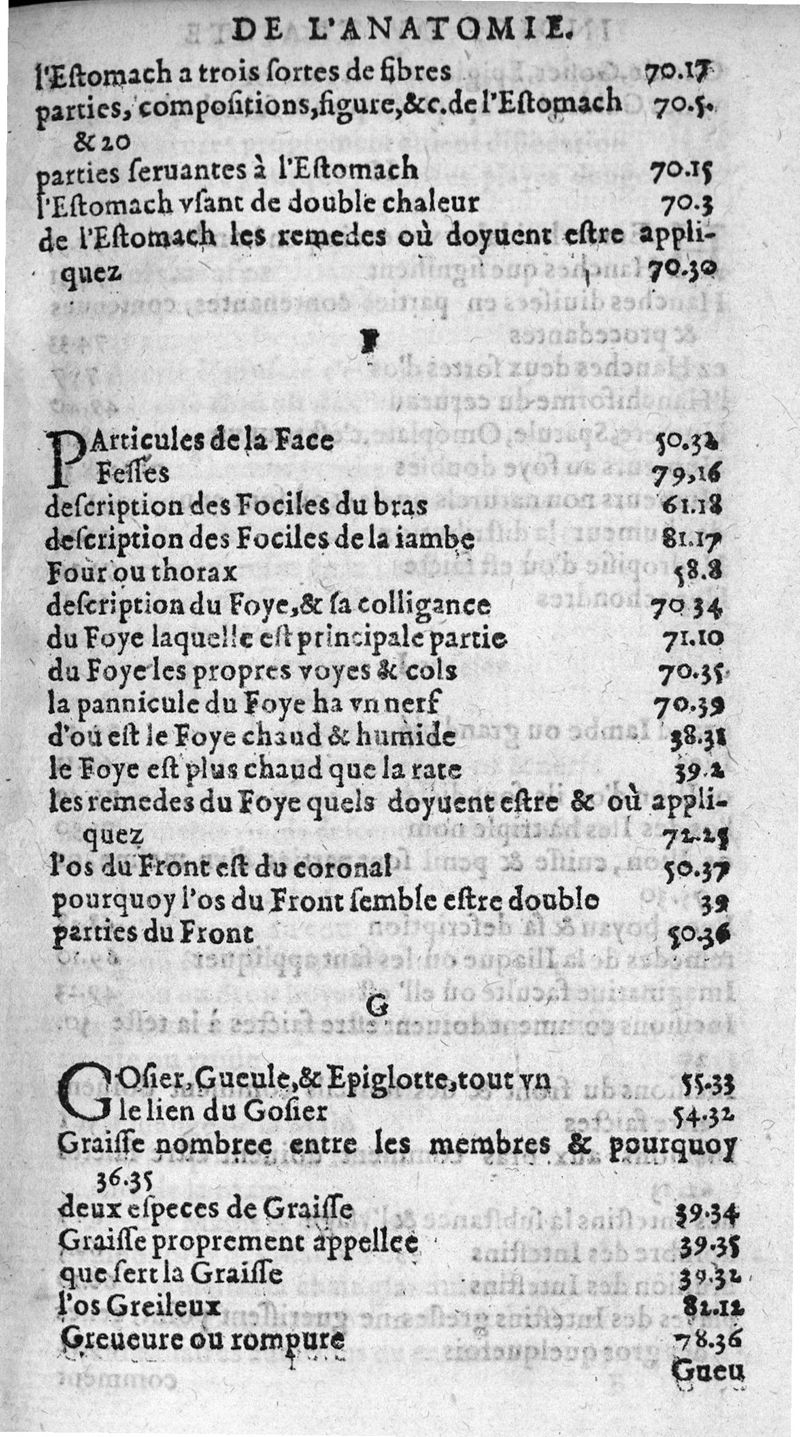 DE L'ANATOMIE.
l'Eſtomach a trois ſortes de fibres 70.17
parties, compoſitions, figure, &c. de l'Eſtomach 70.5.
& 20
parties ſeruantes à l'Eſtomach 70.15
l'Eſtomach vſant de double chaleur 70.3
de l'Eſtomach les remedes où doyuent eſtre appli-
quez 70.30
F
PArticules de la Face 50.32
Feſſes 79,16
deſcription des Fociles du bras 61.18
deſcription des Fociles de la iambe 81.17
Four ou thorax 58.8
deſcription du Foye, & ſa colligance 70 34
du Foye laquelle eſt principale partie 71.10
du Foye les propres voyes & cols 70.35
la pannicule du Foye ha vn nerf 70.39
d'où eſt le Foye chaud & humide 38.31
le Foye eſt plus chaud que la rate 39.2
les remedes du Foye quels doyuent eſtre & où appli-
quez 72.25
l'os du Front eſt du coronal 50.37
pourquoy l'os du Front ſemble eſtre double 39
parties du Front 50.36
G
GOſier, Gueule, & Epiglotte, tout vn 55.33
le lien du Goſier 54.32
Graiſſe nombree entre les membres & pourquoy
36.35
deux eſpeces de Graiſſe 39.34
Graiſſe proprement appellee 39.35
que ſert la Graiſſe 39.32
l'os Greileux 82.12
Greueure ou rompure 78.36
Gueu